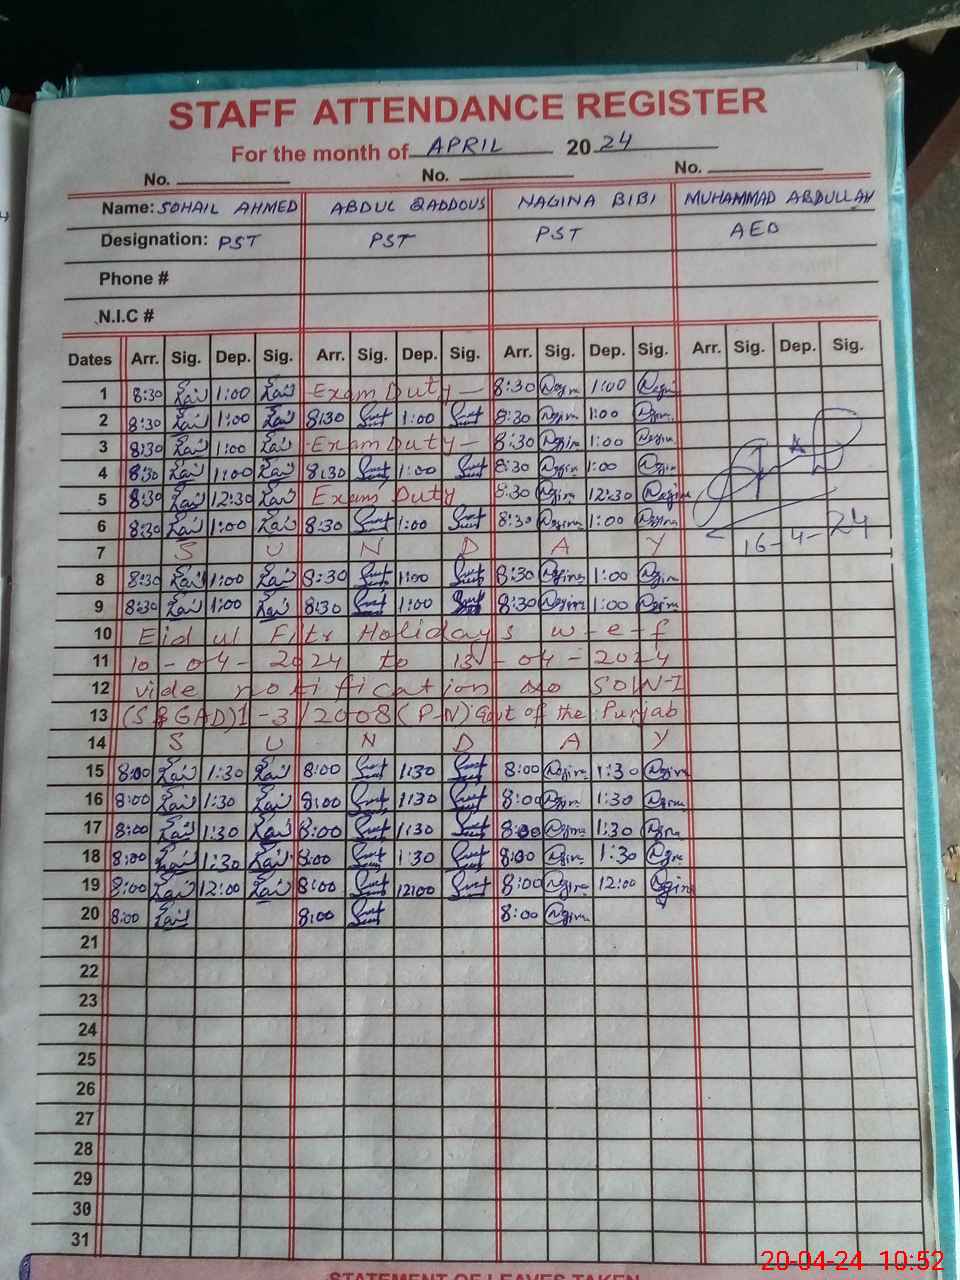 STAFF ATTENDANCE REGISTER
For the month of APRIL 2024
No. No. No.
Name: SOHAIL AHMED ABDUL QADDOUS NAGINA BIBI MUHAMMAD ABDULLAH
Designation: PST PST PST AEO
Phone #
N.I.C #
Dates Arr. Sig. Dep. Sig. Arr. Sig. Dep. Sig. Arr. Sig. Dep. Sig. Arr. Sig. Dep. Sig.
1 8:30 1:00 Exam Duty — 8:30 1:00
2 8:30 1:00 8:30 1:00 8:30 1:00
3 8:30 1:00 Exam Duty — 8:30 1:00
4 8:30 1:00 8:30 1:00 8:30 1:00
5 8:30 12:30 Exam Duty 8:30 12:30
6 8:30 1:00 8:30 1:00 8:30 1:00
16-4-24
7 S U N D A Y
8 8:30 1:00 8:30 1:00 8:30 1:00
9 8:30 1:00 8:30 1:00 8:30 1:00
10 Eid ul Fitr Holidays w-e-f
11 10-04-2024 to 13-04-2024
12 vide notification no SOW-I
13 (S&GAD)1-3/2008(P-N) Govt of the Punjab
14 S U N D A Y
15 8:00 1:30 8:00 1:30 8:00 1:30
16 8:00 1:30 8:00 1:30 8:00 1:30
17 8:00 1:30 8:00 1:30 8:00 1:30
18 8:00 1:30 8:00 1:30 8:00 1:30
19 8:00 12:00 8:00 12:00 8:00 12:00
20 8:00 8:00 8:00
21
22
23
24
25
26
27
28
29
30
31
STATEMENT OF LEAVES TAKEN
20-04-24 10:52